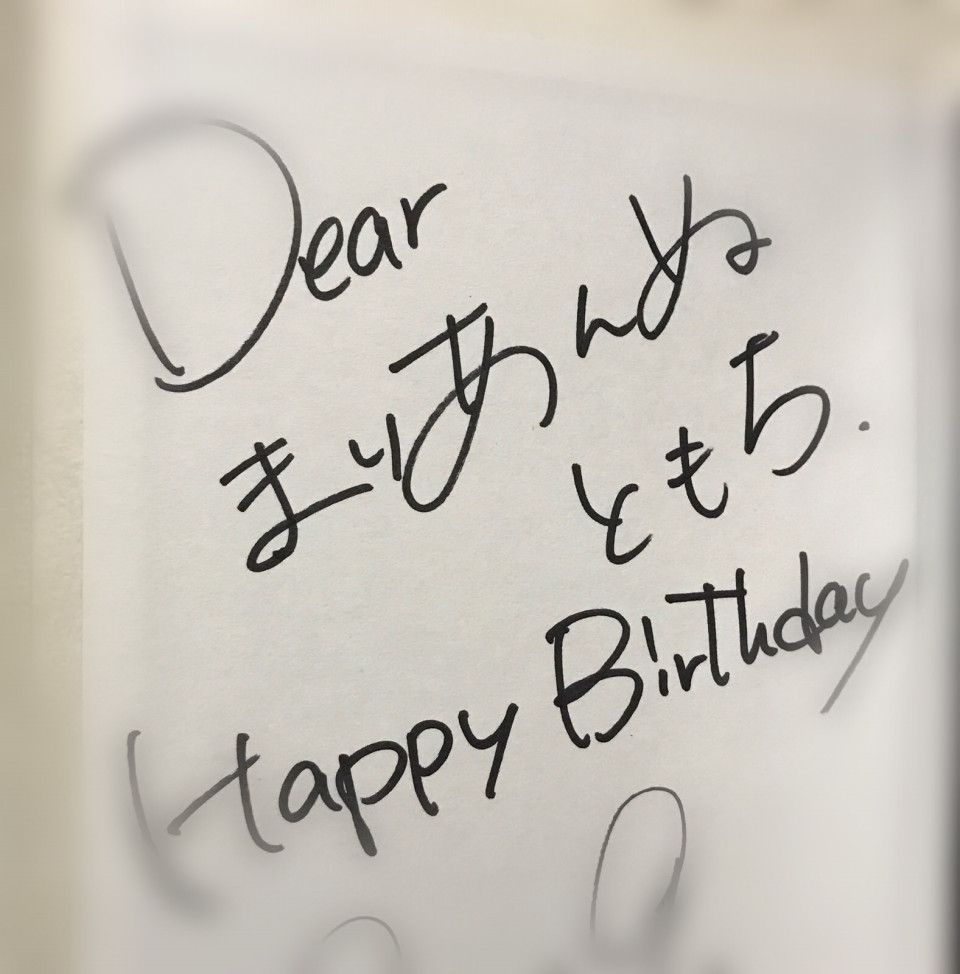 Dear
まりあんぬ
ともち.
Happy Birthday